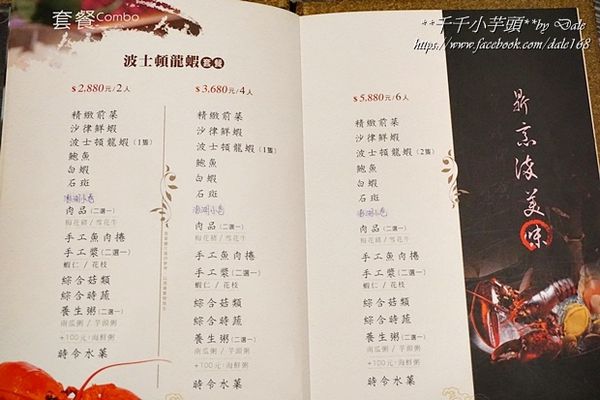 套餐Combo
**千千小芋頭**by Dale
https://www.facebook.com/dale168
波士頓龍蝦套餐
$2.880元/2人
精緻前菜
沙律鮮蝦
波士頓龍蝦(1隻)
鮑魚
白蝦
石斑
澎湖小卷
肉品(二選一)
梅花豬/雪花牛
手工魚肉捲
手工漿(二選一)
蝦仁/花枝
綜合菇類
綜合時蔬
養生粥(二選一)
南瓜粥/芋頭粥
+100元/海鮮粥
時令水菓
$3.680元/4人
精緻前菜
沙律鮮蝦
波士頓龍蝦(1隻)
鮑魚
白蝦
石斑
澎湖小卷
肉品(二選一)
梅花豬/雪花牛
手工魚肉捲
手工漿(二選一)
蝦仁/花枝
綜合菇類
綜合時蔬
養生粥(二選一)
南瓜粥/芋頭粥
+100元/海鮮粥
時令水菓
$5.880元/6人
精緻前菜
沙律鮮蝦
波士頓龍蝦(2隻)
鮑魚
白蝦
石斑
澎湖小卷
肉品(二選一)
梅花豬/雪花牛
手工魚肉捲
手工漿(二選一)
蝦仁/花枝
綜合菇類
綜合時蔬
養生粥(二選一)
南瓜粥/芋頭粥
+100元/海鮮粥
時令水菓
鼎京海美味